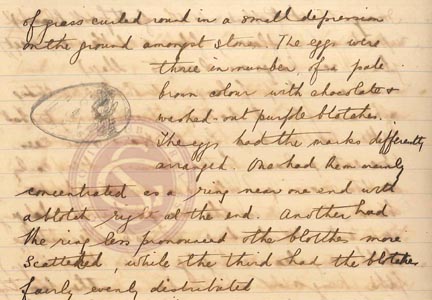 of grass curled round in a small depression
on the ground amongst stones. The eggs were
three in number, of a pale
brown colour with chocolate &
washed-out purple blotches.
The eggs had the marks differently
arranged. One had them mainly
concentrated as a ring near one end with
a blotch right at the end. Another had
the ring less pronounced & the blotches more
scattered, while the third had the blotches
fairly evenly distributed